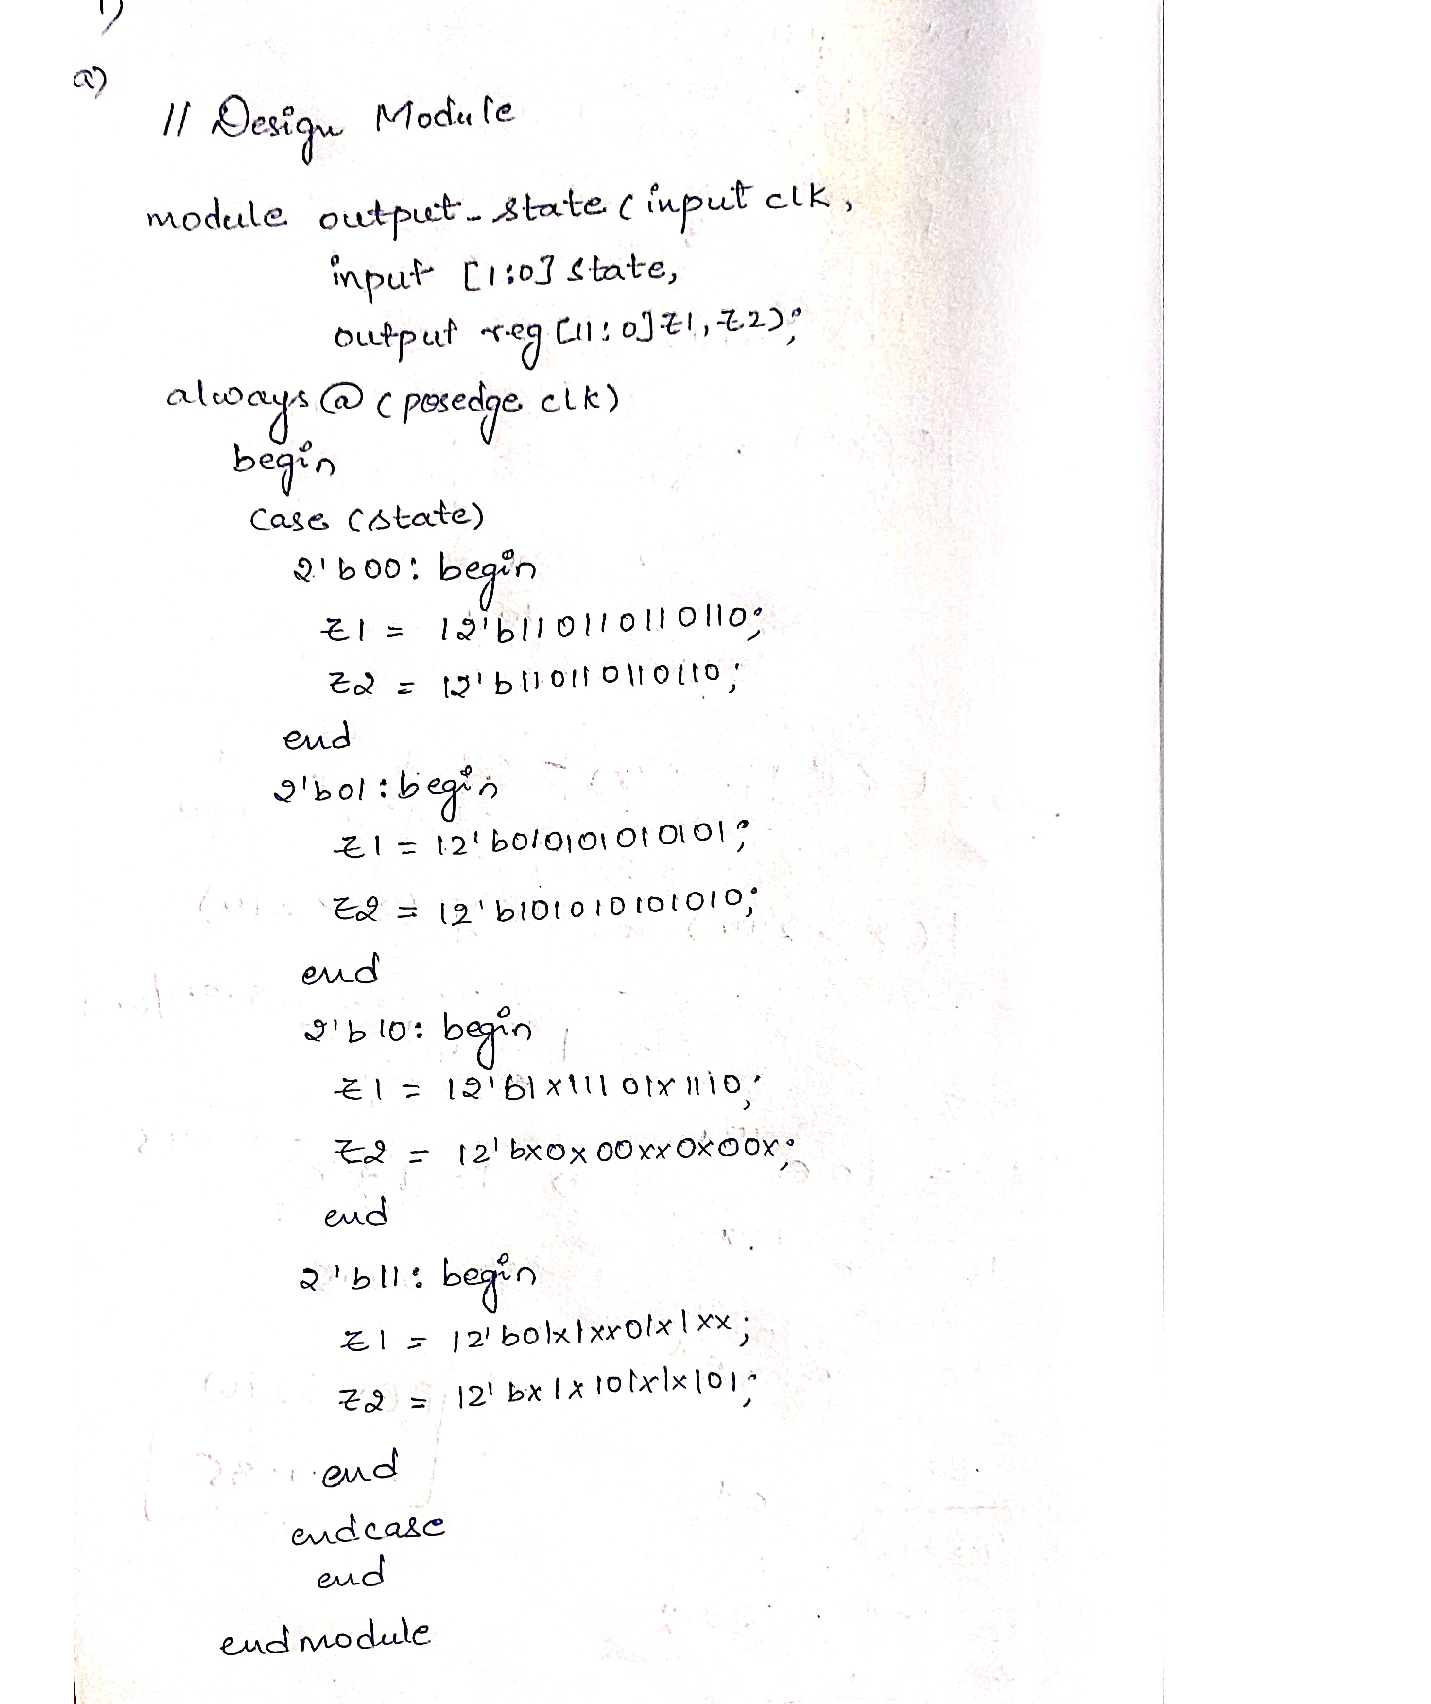 a)
// Design Module
module output_state (input clk,
input [1:0] state,
output reg [11:0] z1, z2);
always @ (posedge clk)
begin
case (state)
2'b00: begin
z1 = 12'b110110110110;
z2 = 12'b110110110110;
end
2'b01: begin
z1 = 12'b010101010101;
z2 = 12'b101010101010;
end
2'b10: begin
z1 = 12'b1x11101x1110;
z2 = 12'bx0x00xx0x00x;
end
2'b11: begin
z1 = 12'b01x1xx01x1xx;
z2 = 12'bx1x101x1x101;
end
endcase
end
endmodule